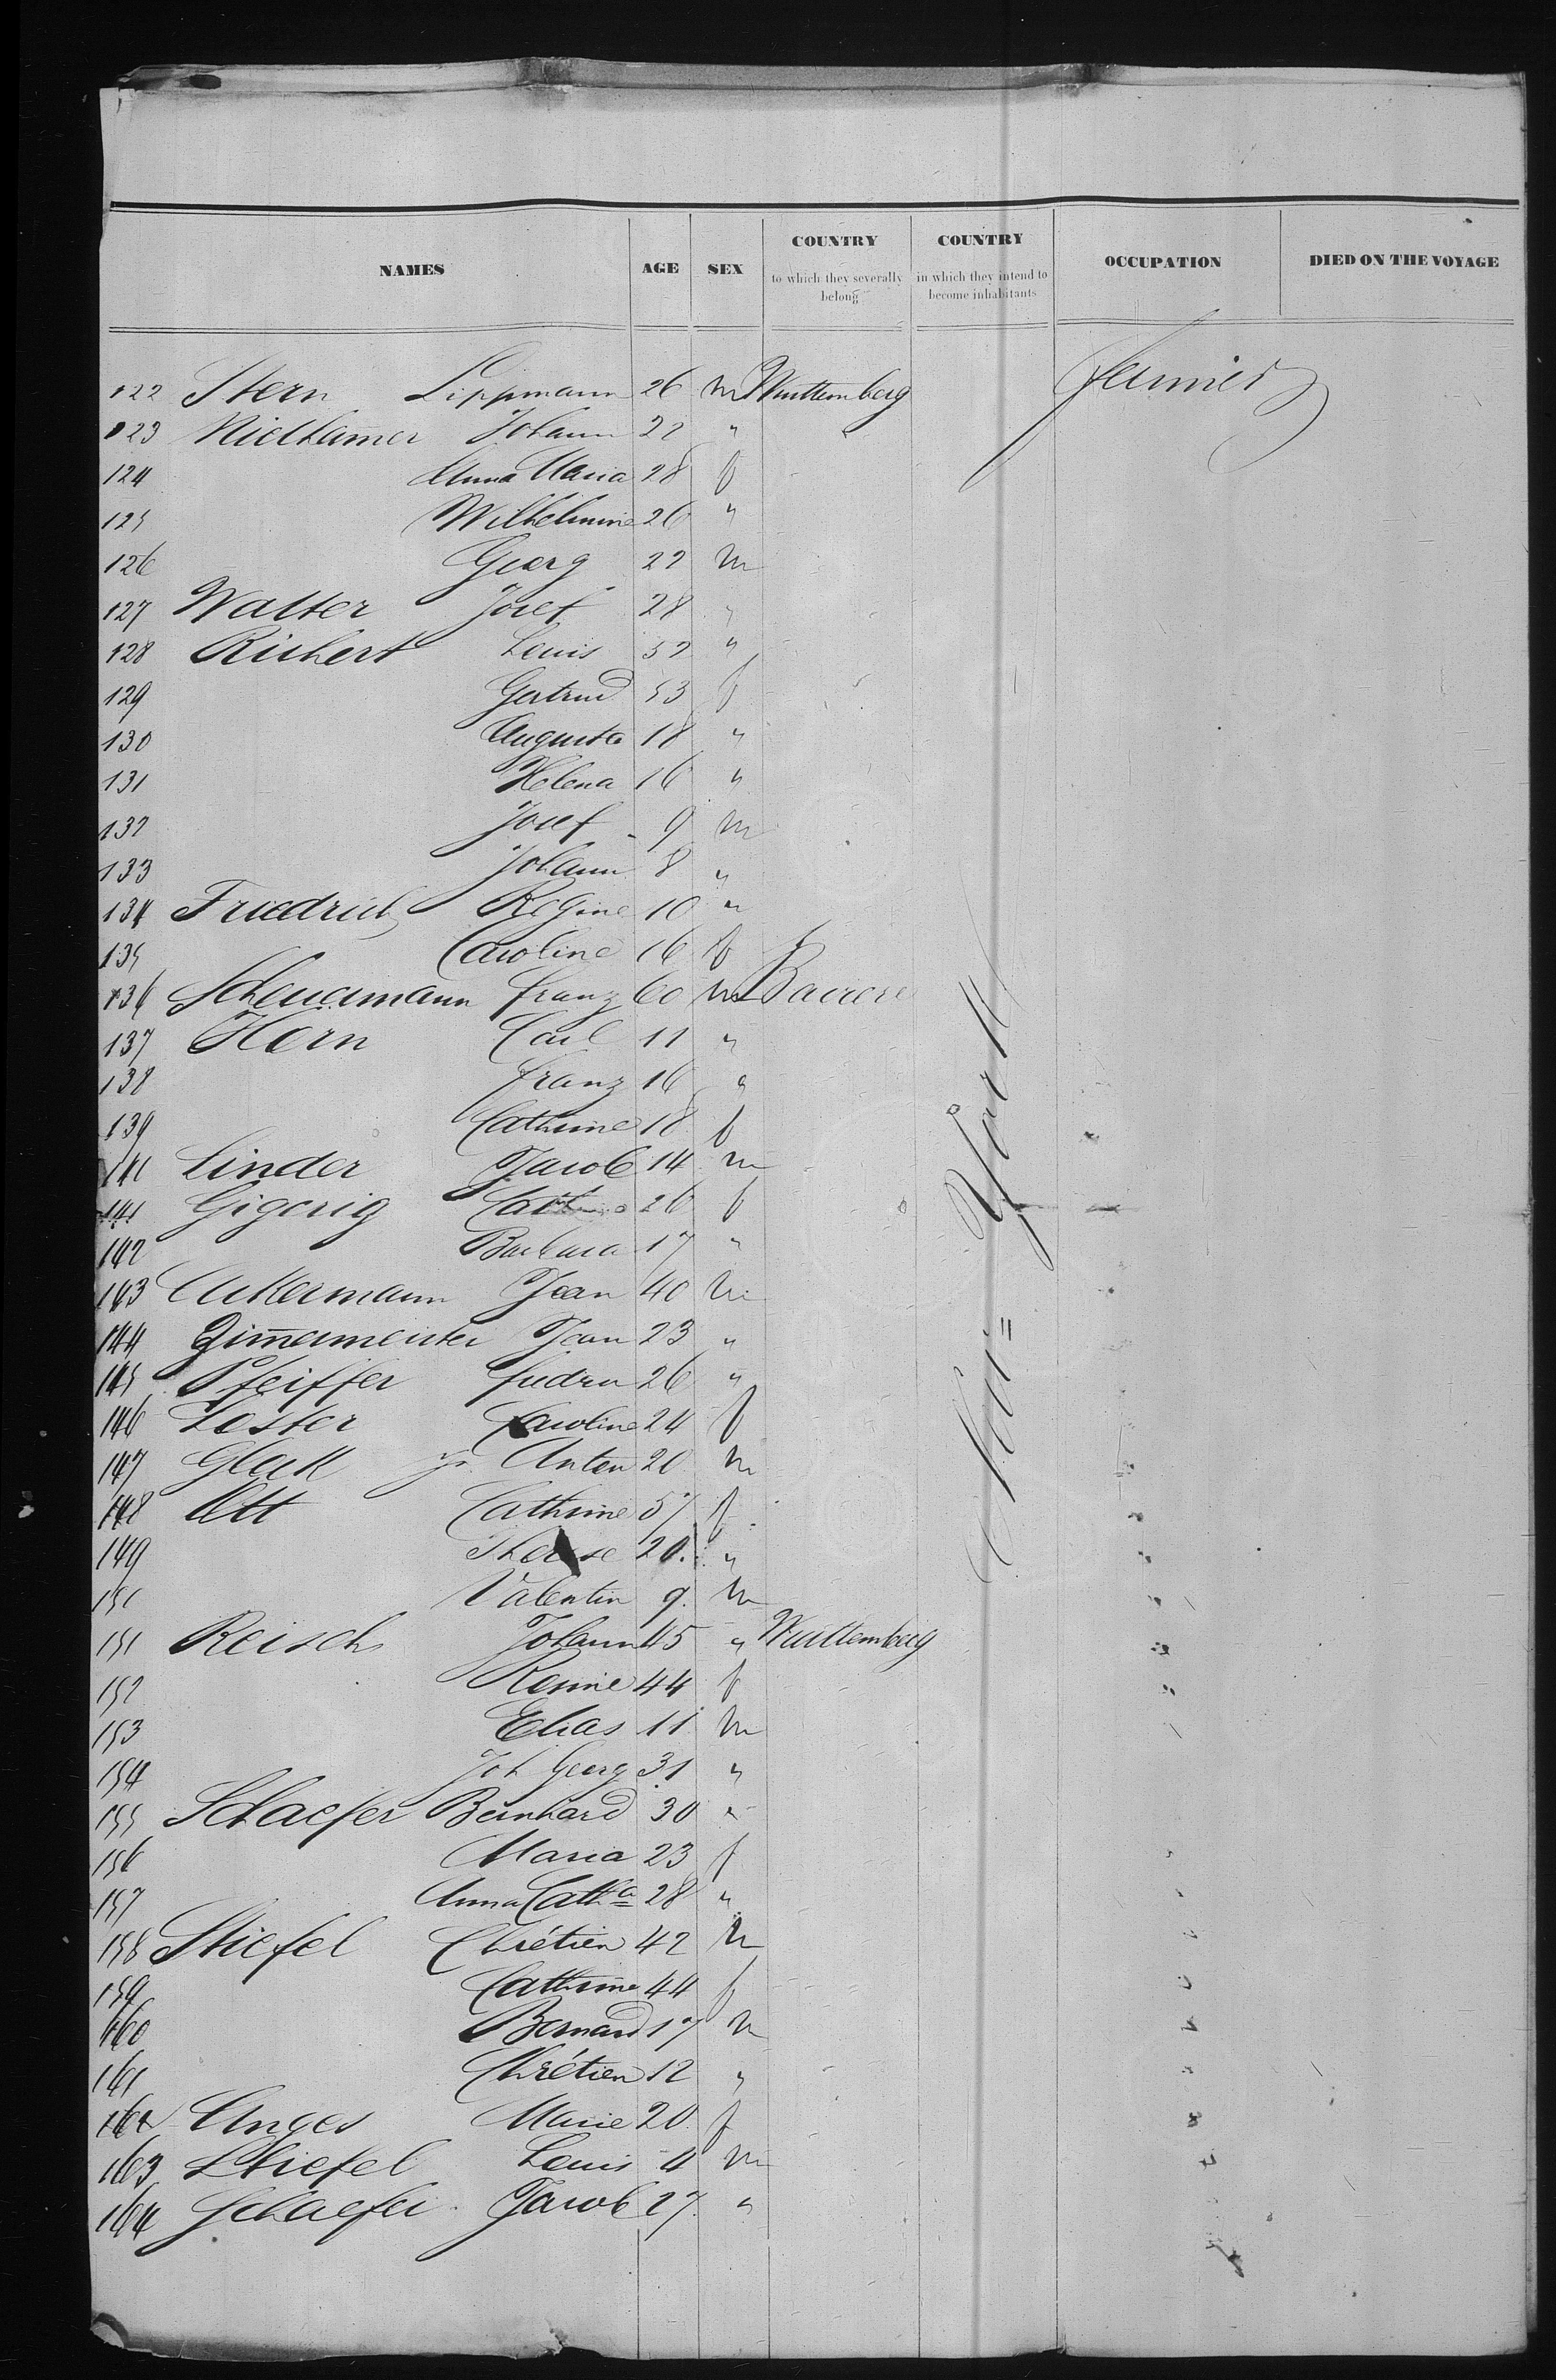 NAMES AGE SEX COUNTRY to which they severally belong COUNTRY in which they intend to become inhabitants OCCUPATION DIED ON THE VOYAGE
122 Stern Lippmann 26 m Wurttemberg Farmer
123 Niethamer Johann 22 "
124 Anna Maria 28 f
125 Wilhelmine 26 "
126 Georg 22 m
127 Walter Josef 28 "
128 Richert Louis 52 "
129 Gertrud 53 f
130 Augusta 18 "
131 Helena 16 "
132 Josef 9 m
133 Johann 8 "
134 Friedrich Regine 10 "
135 Caroline 16 f
136 Scheuermann Franz 60 m Baviere
137 Horn Carl 11 "
138 Franz 16 "
139 Cathrine 18 f
141 Linder Jacob 14 m
141 Gigerig 26 f
142 Barbara 17 "
143 Ackermann Jean 40 m
144 Zimermeister Jean 23 "
145 Pfeiffer 26 "
146 Lester Caroline 24 f
147 Anton 20 m
148 Ott Cathrine 57 f
149 Therese 20 "
151 Valentin 9 m
151 Reisch Johann 45 " Wurttemberg
152 44 f
153 Elias 11 m
154 Joh Georg 31 "
155 Schaefer Bernhard 30 "
156 Maria 23 f
157 Anna Catha 28 "
158 Stiefel Chrétien 42 m
159 Cathrine 44 f
160 Bernard 17 m
161 Chrétien 12 "
162 Anges Marie 20 f
163 Stiefel Louis 4 m
164 Schaefer Jacob 27 "
New=York